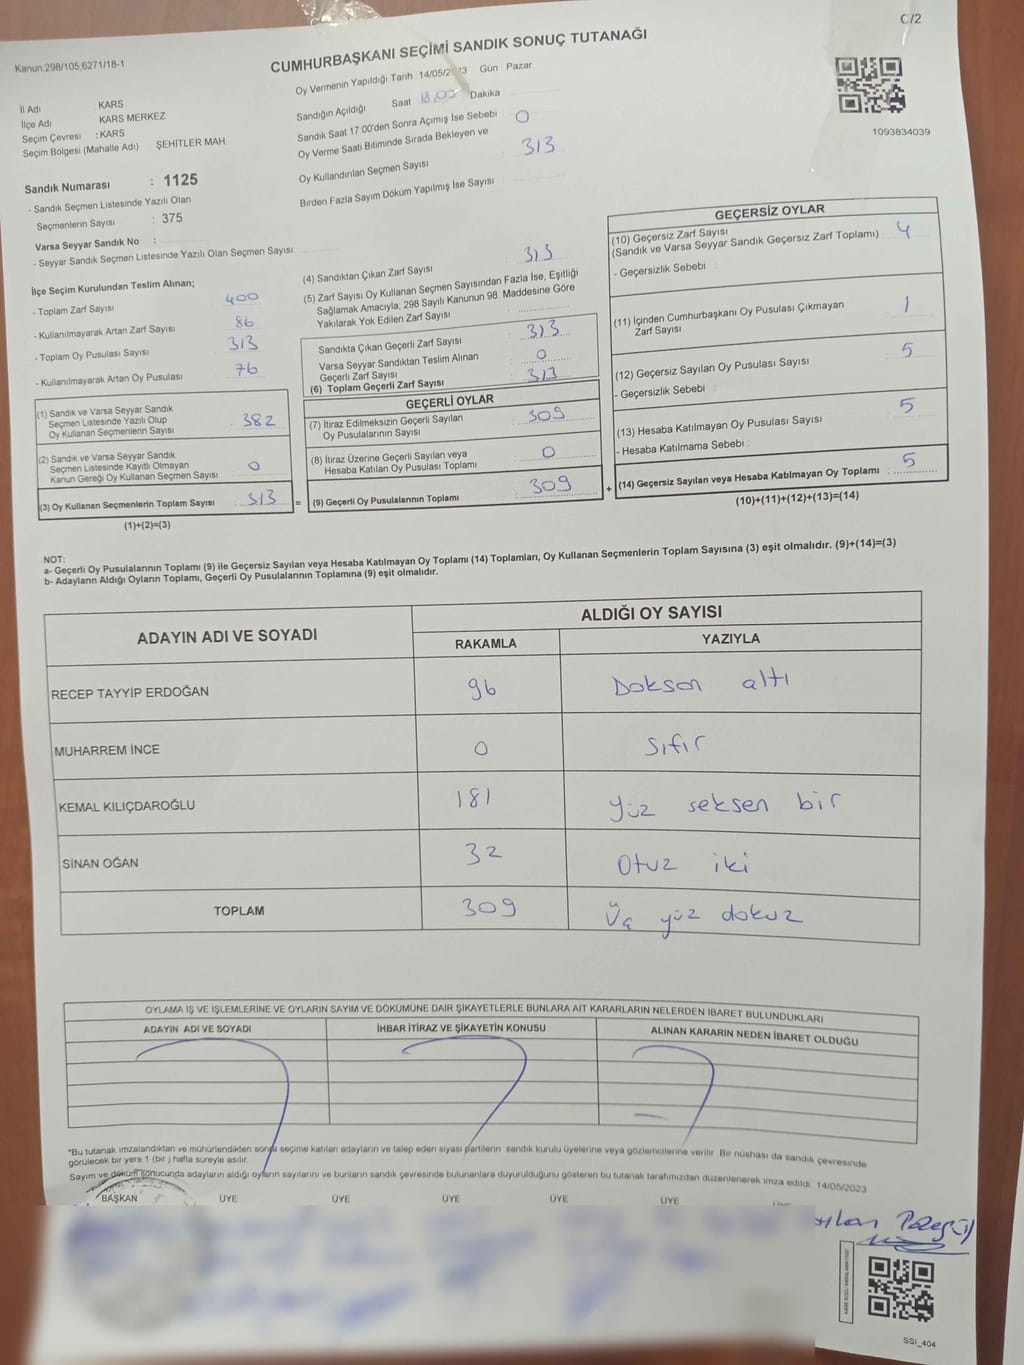 C/2
Kanun.298/105,6271/18-1
CUMHURBAŞKANI SEÇİMİ SANDIK SONUÇ TUTANAĞI
Oy Vermenin Yapıldığı Tarih 14/05/2023 Gün Pazar
Sandığın Açıldığı Saat 18.00 Dakika
Sandık Saat 17:00'den Sonra Açımış İse Sebebi 0
Oy Verme Saati Bitiminde Sırada Bekleyen ve
Oy Kullandırılan Seçmen Sayısı 313
Birden Fazla Sayım Döküm Yapılmış İse Sayısı
1093834039
İl Adı KARS
İlçe Adı KARS MERKEZ
Seçim Çevresi : KARS
Seçim Bölgesi (Mahalle Adı) ŞEHİTLER MAH.
Sandık Numarası : 1125
- Sandık Seçmen Listesinde Yazılı Olan
Seçmenlerin Sayısı : 375
Varsa Seyyar Sandık No :
- Seyyar Sandık Seçmen Listesinde Yazılı Olan Seçmen Sayısı:
İlçe Seçim Kurulundan Teslim Alınan;
- Toplam Zarf Sayısı 400
- Kullanılmayarak Artan Zarf Sayısı 86
- Toplam Oy Pusulası Sayısı 313
- Kullanılmayarak Artan Oy Pusulası 76
(1) Sandık ve Varsa Seyyar Sandık
Seçmen Listesinde Yazılı Olup
Oy Kullanan Seçmenlerin Sayısı 382
(2) Sandık ve Varsa Seyyar Sandık
Seçmen Listesinde Kayıtlı Olmayan
Kanun Gereği Oy Kullanan Seçmen Sayısı 0
(3) Oy Kullanan Seçmenlerin Toplam Sayısı : 313 =
(1)+(2)=(3)
(4) Sandıktan Çıkan Zarf Sayısı 313
(5) Zarf Sayısı Oy Kullanan Seçmen Sayısından Fazla İse, Eşitliği
Sağlamak Amacıyla, 298 Sayılı Kanunun 98. Maddesine Göre
Yakılarak Yok Edilen Zarf Sayısı :
Sandıkta Çıkan Geçerli Zarf Sayısı : 313
Varsa Seyyar Sandıktan Teslim Alınan
Geçerli Zarf Sayısı : 0
(6) Toplam Geçerli Zarf Sayısı : 313
GEÇERLİ OYLAR
(7) İtiraz Edilmeksizin Geçerli Sayılan
Oy Pusulalarının Sayısı : 309
(8) İtiraz Üzerine Geçerli Sayılan veya
Hesaba Katılan Oy Pusulası Toplamı : 0
(9) Geçerli Oy Pusulalarının Toplamı : 309 +
GEÇERSİZ OYLAR
(10) Geçersiz Zarf Sayısı
(Sandık ve Varsa Seyyar Sandık Geçersiz Zarf Toplamı) : 4
- Geçersizlik Sebebi :
(11) İçinden Cumhurbaşkanı Oy Pusulası Çıkmayan
Zarf Sayısı : 1
(12) Geçersiz Sayılan Oy Pusulası Sayısı : 5
- Geçersizlik Sebebi :
(13) Hesaba Katılmayan Oy Pusulası Sayısı : 5
- Hesaba Katılmama Sebebi :
(14) Geçersiz Sayılan veya Hesaba Katılmayan Oy Toplamı : 5
(10)+(11)+(12)+(13)=(14)
NOT:
a- Geçerli Oy Pusulalarının Toplamı (9) ile Geçersiz Sayılan veya Hesaba Katılmayan Oy Toplamı (14) Toplamları, Oy Kullanan Seçmenlerin Toplam Sayısına (3) eşit olmalıdır. (9)+(14)=(3)
b- Adayların Aldığı Oyların Toplamı, Geçerli Oy Pusulalarının Toplamına (9) eşit olmalıdır.
ADAYIN ADI VE SOYADI ALDIĞI OY SAYISI
RAKAMLA YAZIYLA
RECEP TAYYİP ERDOĞAN 96 Doksan altı
MUHARREM İNCE 0 Sıfır
KEMAL KILIÇDAROĞLU 181 Yüz seksen bir
SİNAN OĞAN 32 Otuz iki
TOPLAM 309 Üç yüz dokuz
OYLAMA İŞ VE İŞLEMLERİNE VE OYLARIN SAYIM VE DÖKÜMÜNE DAİR ŞİKAYETLERLE BUNLARA AİT KARARLARIN NELERDEN İBARET BULUNDUKLARI
ADAYIN ADI VE SOYADI İHBAR İTİRAZ VE ŞİKAYETİN KONUSU ALINAN KARARIN NEDEN İBARET OLDUĞU
*Bu tutanak imzalandıktan ve mühürlendikten sonra seçime katılan adayların ve talep eden siyasi partilerin sandık kurulu üyelerine veya gözlemcilerine verilir. Bir nüshası da sandık çevresinde
görülecek bir yere 1 (bir) hafta süreyle asılır.
Sayım ve döküm sonucunda adayların aldığı oyların sayılarını ve bunların sandık çevresinde bulunanlara duyurulduğunu gösteren bu tutanak tarafımızdan düzenlenerek imza edildi. 14/05/2023
BAŞKAN ÜYE ÜYE ÜYE ÜYE ÜYE
SSI_404